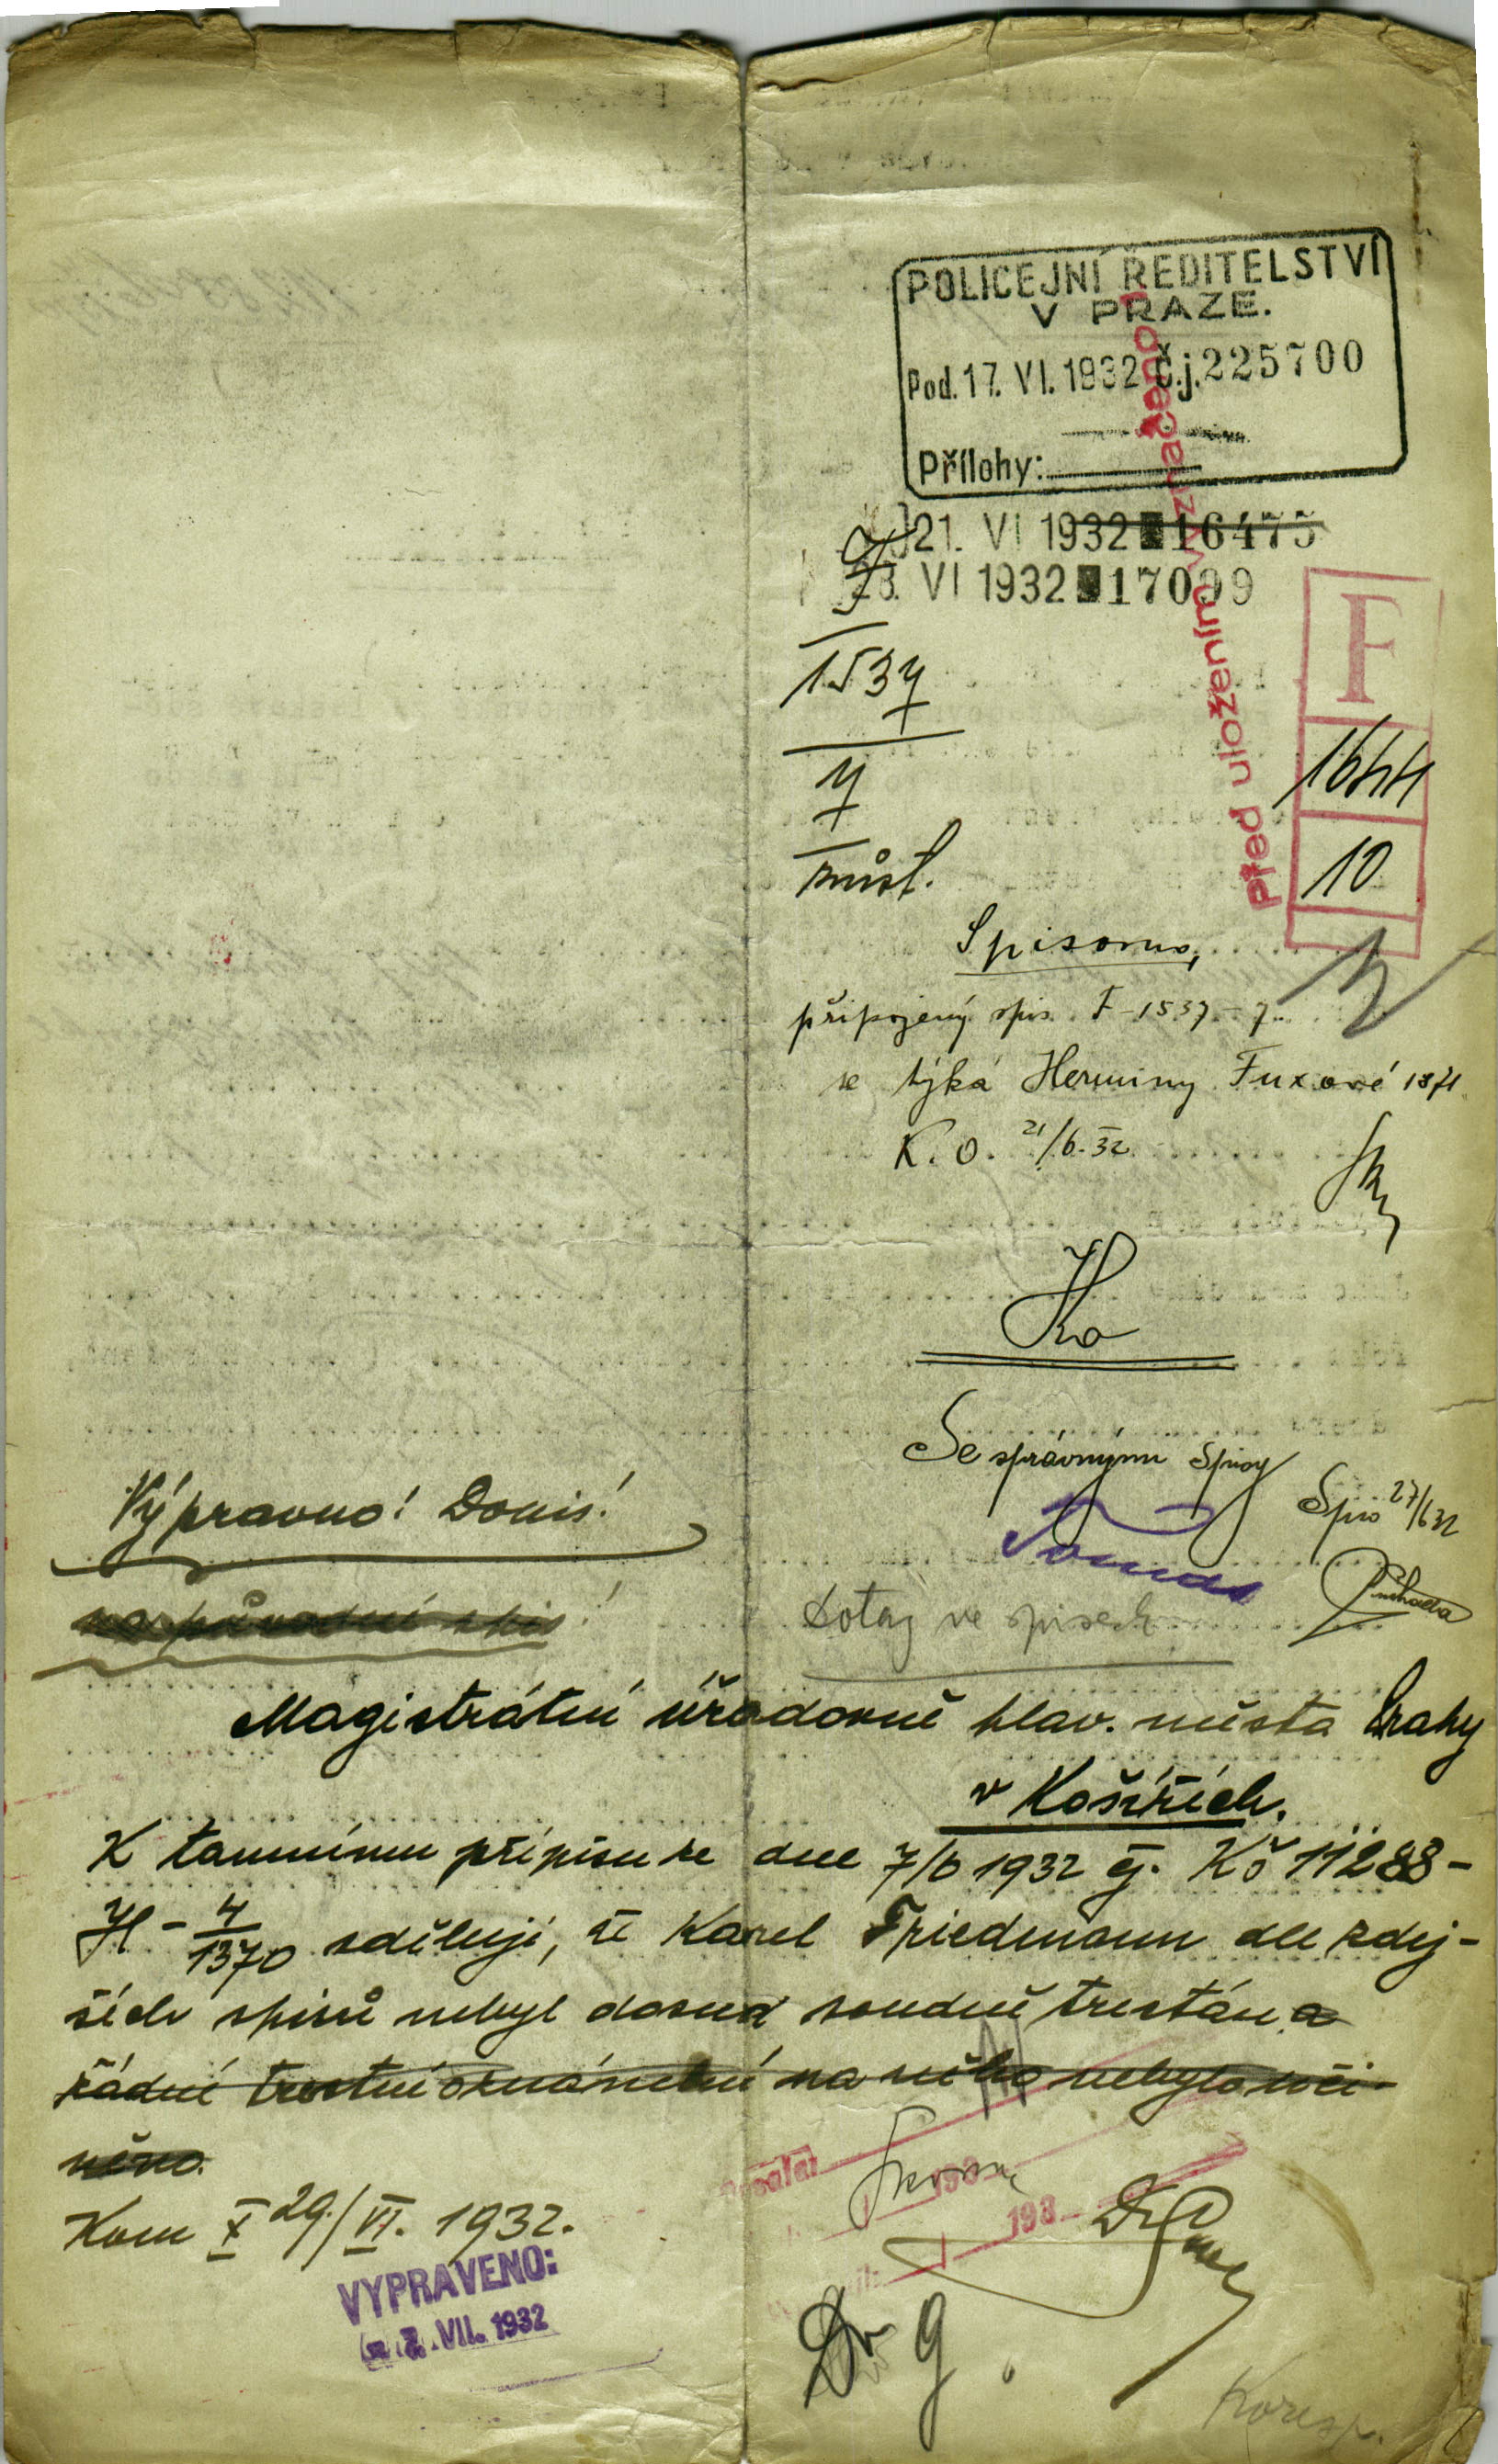 POLICEJNÍ ŘEDITELSTVÍ
V PRAZE.
Pod. 17. VI. 1932 Č.j. 225700
Přílohy:
21. VI 1932 16475
23. VI 1932 17099
1537
7
zůst.
F
1644
10
před uložením vyznačeno
Spisovna,
připojený spis F-1537-7
se týká Herminy Fuxové 1871
K. O. 21/6.32
Ko
Se správnými spisy
Spis 27/6 32
Výpravno! Donis!
na původní spis!
Dotaz ve spisech
Magistrátní úřadovně hlav. města Prahy
v Košířích.
K tamnímu přípisu ze dne 7/6 1932 čj. Kš 11288-
H - 4/1370 sděluji, že Karel Friedmann dle zdej-
ších spisů nebyl dosud soudně trestán a
žádné trestní oznámení na něho nebylo uči-
něno.
Kom X 29/VI. 1932.
VYPRAVENO:
VII. 1932
193
193
Dr
Koresp.